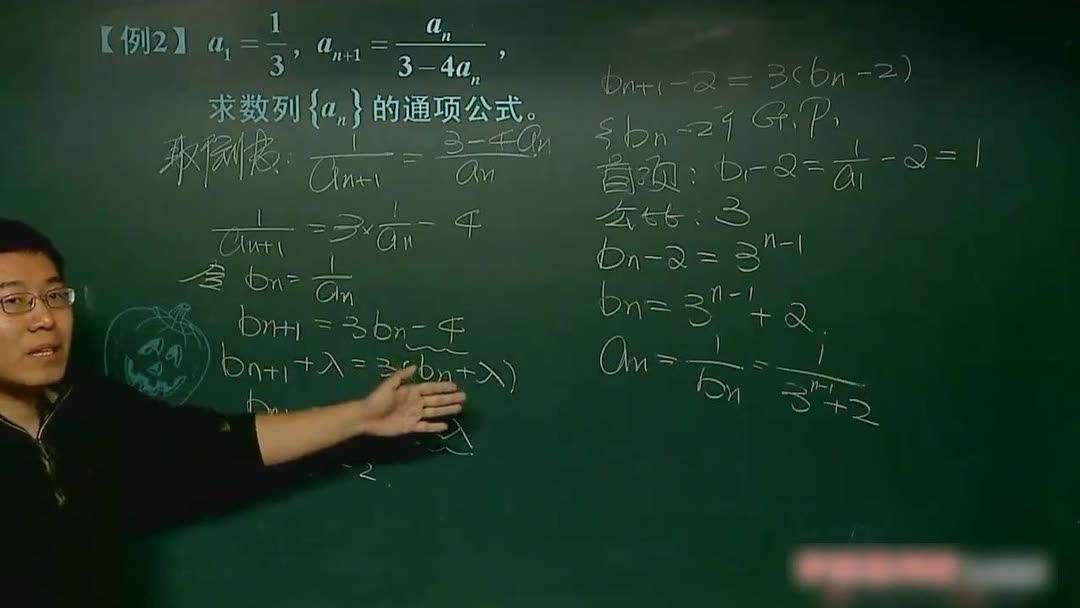 【例2】 a₁ = 1/3, aₙ₊₁ = aₙ/(3-4aₙ),
求数列{aₙ}的通项公式。
取倒数: 1/aₙ₊₁ = (3-4aₙ)/aₙ
1/aₙ₊₁ = 3×1/aₙ - 4
令 bₙ = 1/aₙ
bₙ₊₁ = 3bₙ - 4
bₙ₊₁ + λ = 3(bₙ + λ)
λ
-2.
bₙ₊₁ - 2 = 3(bₙ - 2)
{bₙ - 2} G.P.
首项: b₁ - 2 = 1/a₁ - 2 = 1
公比: 3
bₙ - 2 = 3ⁿ⁻¹
bₙ = 3ⁿ⁻¹ + 2.
aₙ = 1/bₙ = 1/(3ⁿ⁻¹+2)